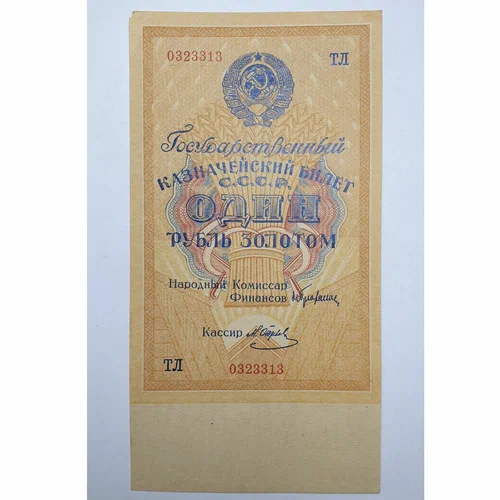 0323313 ТЛ
Государственный
КАЗНАЧЕЙСКИЙ БИЛЕТ
С.С.С.Р.
ОДИН
РУБЛЬ ЗОЛОТОМ
Народный Комиссар
Финансов
Кассир
ТЛ 0323313